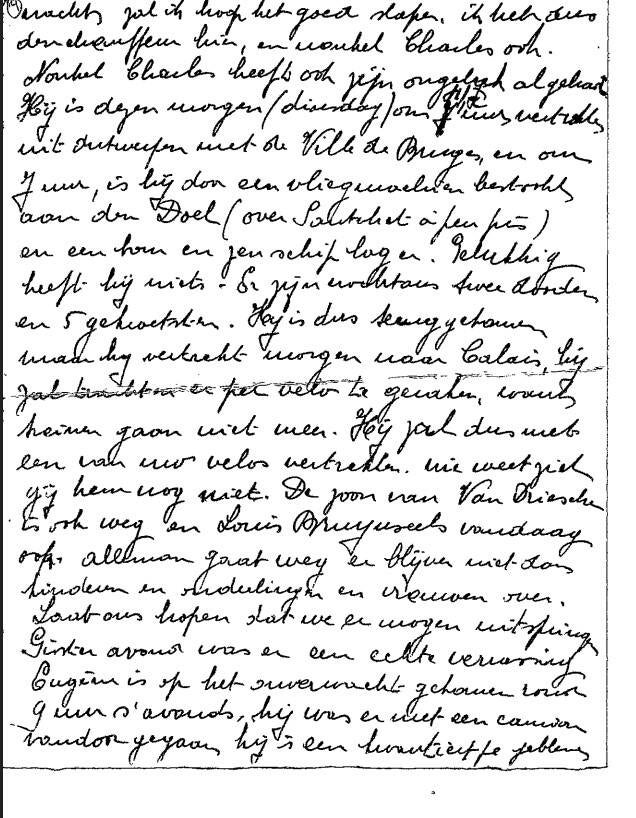 nacht zal ik hoop het goed slapen, ik heb dus
den chauffeur hier, en nonkel Charles ook.
Nonkel Charles heeft ook zijn ongeluk al gehad
Hij is dezen morgen (dinsdag) om uur vertrokken
uit Antwerpen met de Ville de Bruges, en om
7 uur, is hij door een vliegmachien bestookt
aan den Doel (over Santvliet à peu près)
en een bom en zen schip log er. Gelukkig
heeft hij niets - Er zijn nochtans twee dooden
en 5 gekwetsten. Hij is dus terug gekomen
maar hij vertrekt morgen naar Calais, hij
zal trachten er per velo te geraken, want
treinen gaan niet meer. Hij zal dus met
een van uw velos vertrekken. wie weet ziet
gij hem nog niet. De zoon van Van Driessche
is ook weg en Louis Bruyneseels vandaag
ook. alleman gaat weg er blijven niet dan
kinderen en ouderlingen en vrouwen over.
Laat ons hopen dat we er mogen uitspringen
Gister avond was er een echte verrassing
Eugène is op het onverwacht gekomen rond
9 uur s'avonds, hij was er met een camion
vandoor gegaan hij is een kwartiertje gebleven